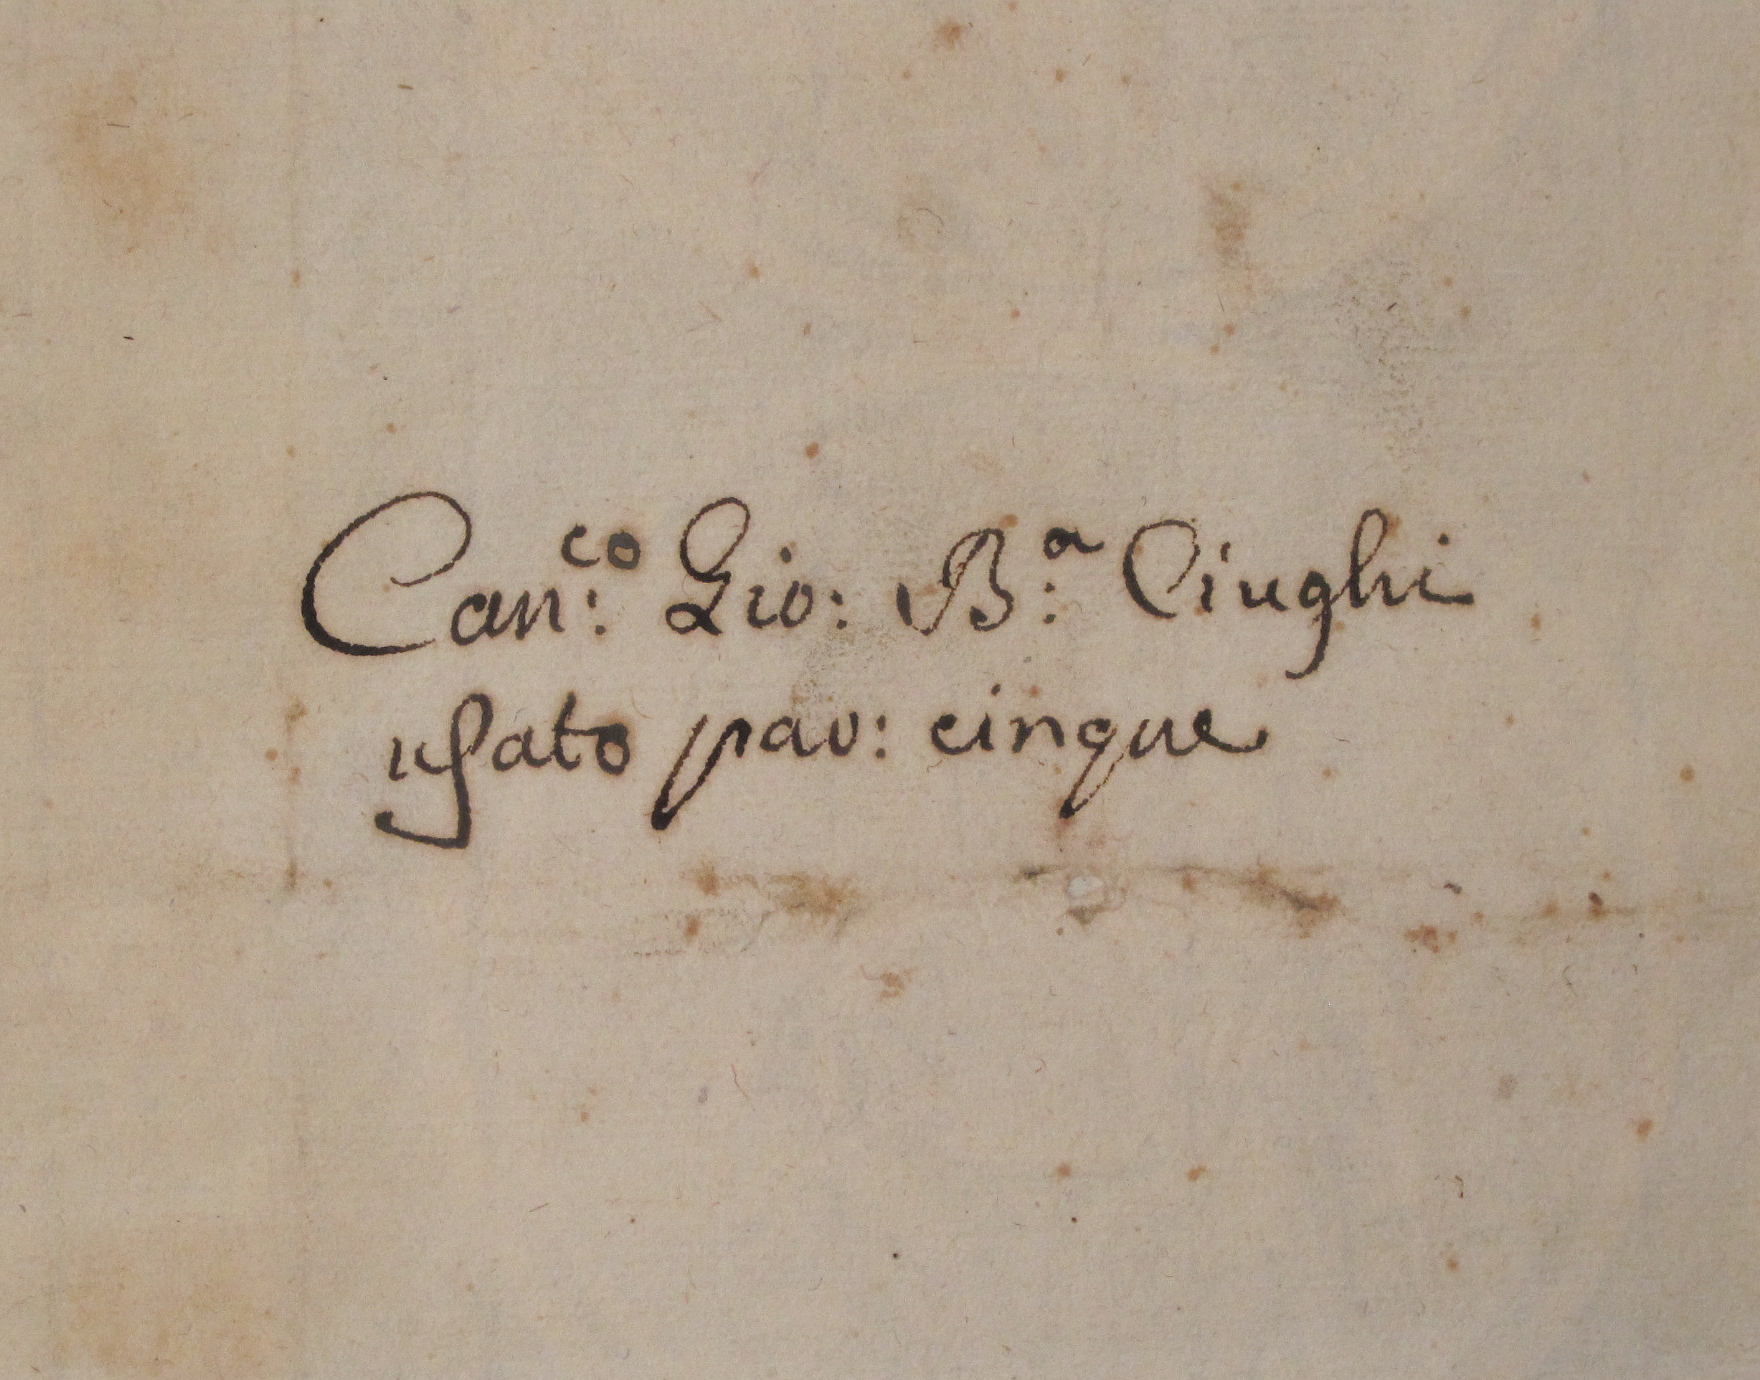 Can:co Gio: B:a Ciughi
uſato pao: cinque